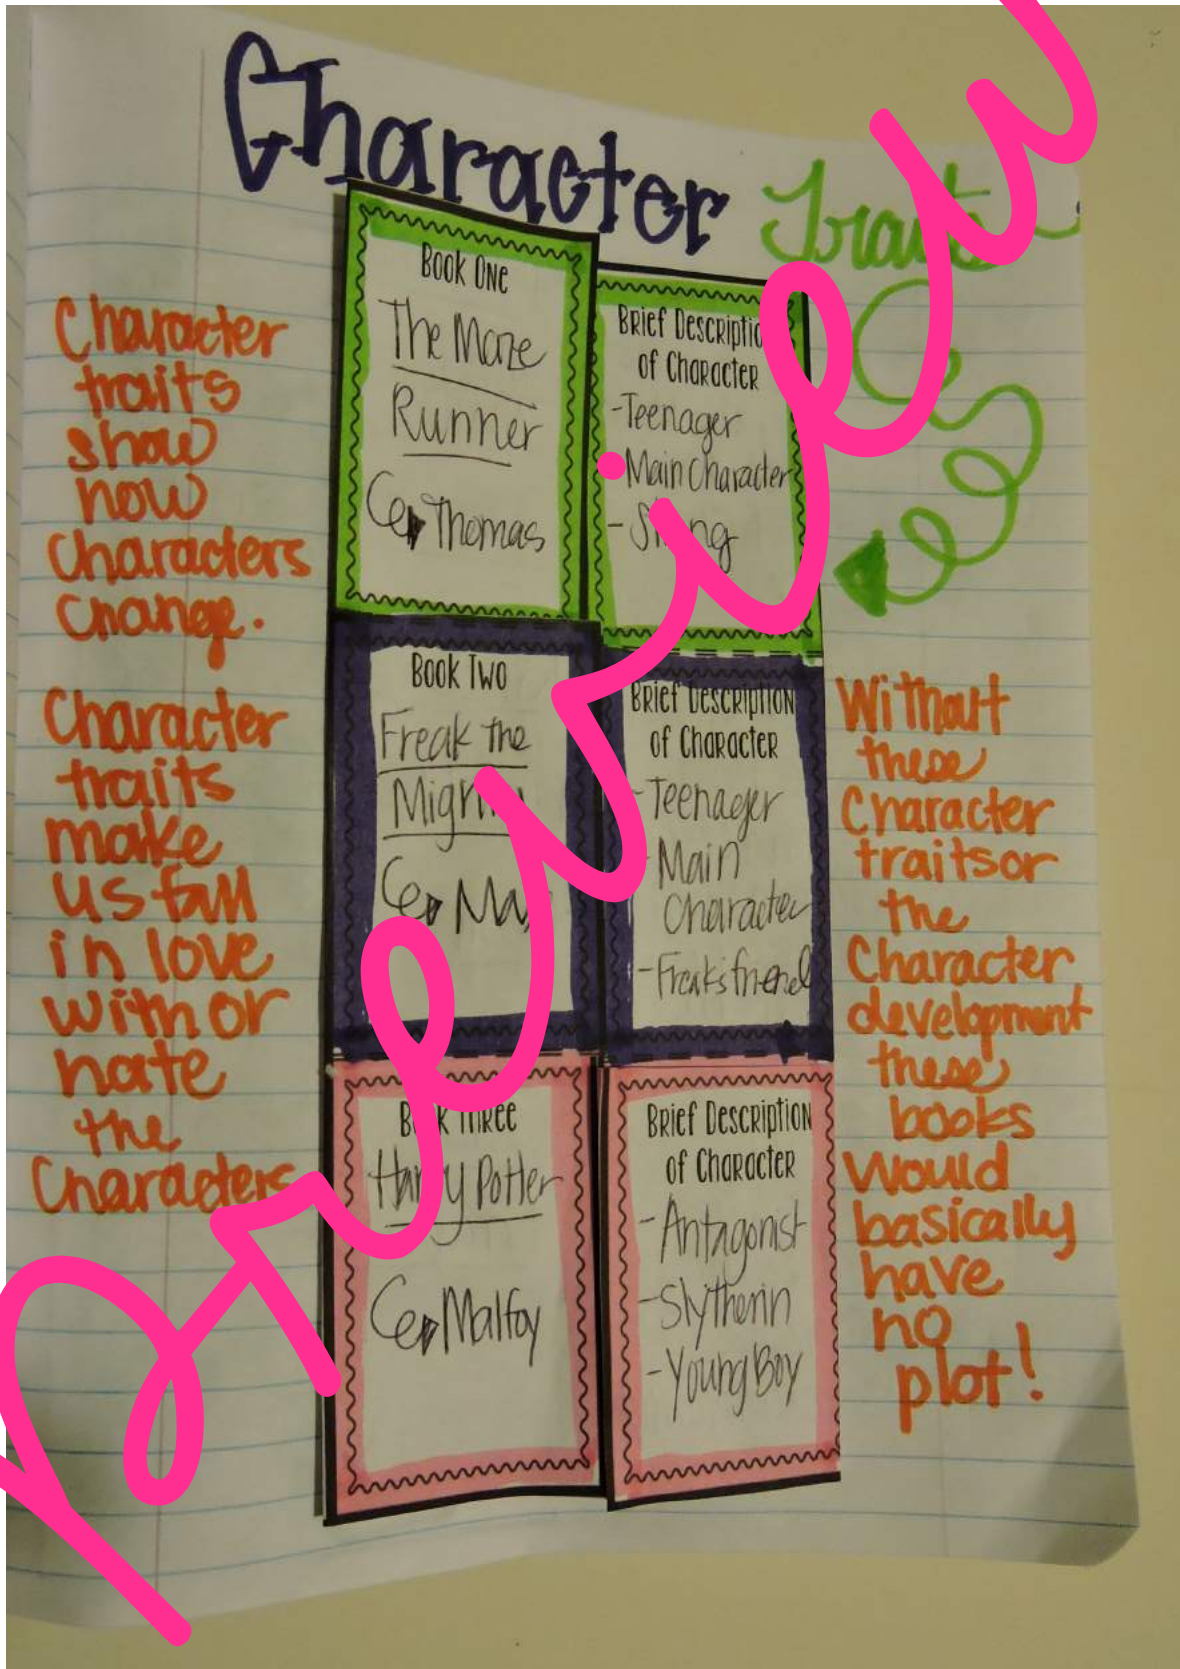 Character Traits
Character
traits
show
how
Characters
Change.
Character
traits
make
us fall
in love
with or
hate
the
Characters
Book One
The Maze
Runner
Thomas
Brief Description
of Character
-Teenager
-Main Character
-Strong
Book Two
Freak the
Mighty
Max
Brief Description
of Character
-Teenager
-Main
Character
-Freaks friend
Book Three
Harry Potter
Malfoy
Brief Description
of Character
-Antagonist
-Slytherin
-Young Boy
Without
these
Character
traits or
the
Character
development
these
books
would
basically
have
no
plot!
preview